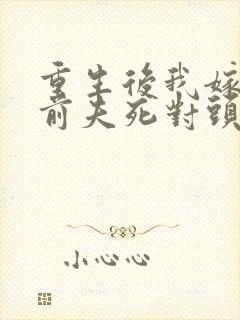 重生後我嫁
前夫死對頭
小心心